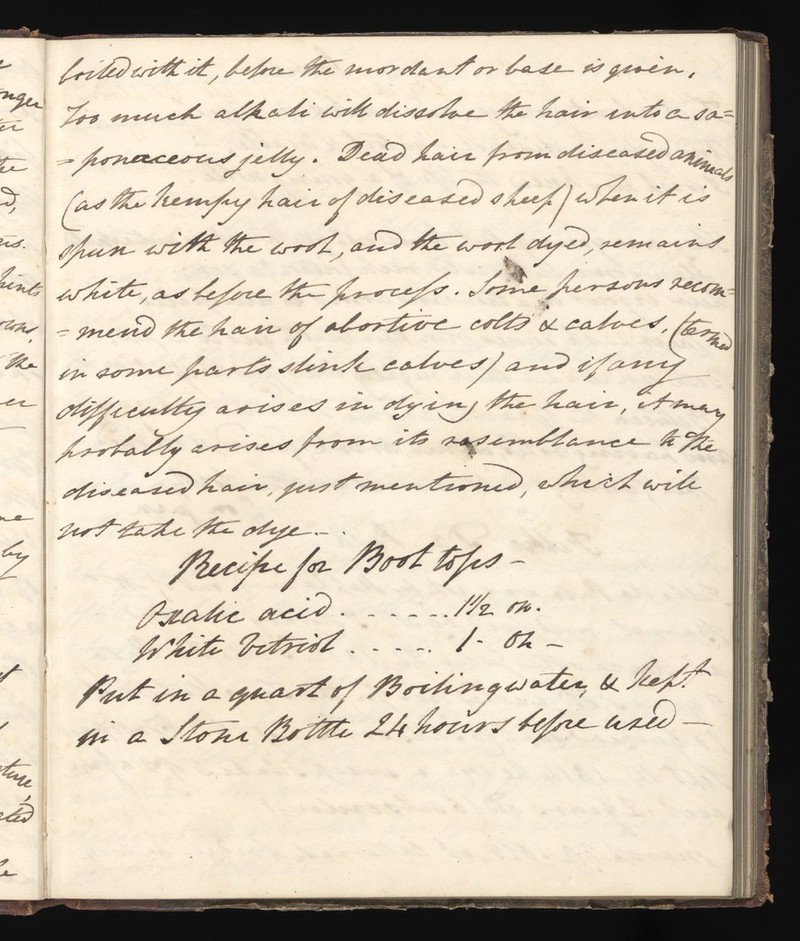 boiled with it, before the mordant or base is given.
Too much alkali will dissolve the hair into a sa=
=ponaceous jelly. Dead hair from diseased animals
(as the kempy hair of diseased sheep) when it is
spun with the wool, and the wool dyed, remains
white, as before the process. Some persons recom=
=mend the hair of abortive colts & calves, (termed
in some parts slink calves) and if any
difficulty arises in dying the hair, it may
probally arises from its resemblance to the
diseased hair, just mentioned, which will
not take the dye -.
Recipe for Boot tops -
Oxalic acid . - - - - . . 1 1/2 on.
White Vitriol . . - - - . 1 - On -
Put in a quart of Boiling water, & kept
in a Stone Bottle 24 hours before used -
onger
the
d,
hints
owns,
the
er
by
ature,
ated